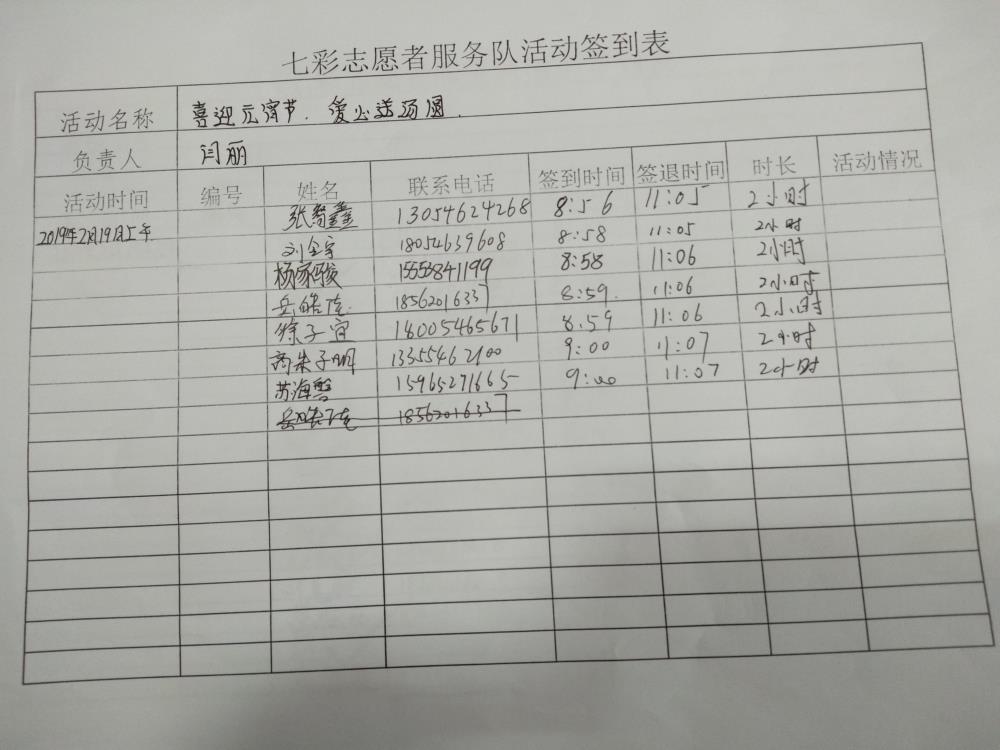 七彩志愿者服务队活动签到表
活动名称 喜迎元宵节.爱心送汤圆.
负责人 闫丽
活动时间 编号 姓名 联系电话 签到时间 签退时间 时长 活动情况
2019年2月19日上午 张智鑫 13054624268 8:56 11:05 2小时
刘全宇 18054639608 8:58 11:05 2小时
杨家骏 15553841199 8:58 11:06 2小时
岳皓 18562016337 8:59. 11:06 2小时
徐子宜 18005465671 8:59 11:06 2小时
商朱子明 13355462100 9:00 11:07 2小时
苏海 15965271665 9:00 11:07 2小时
18562016337